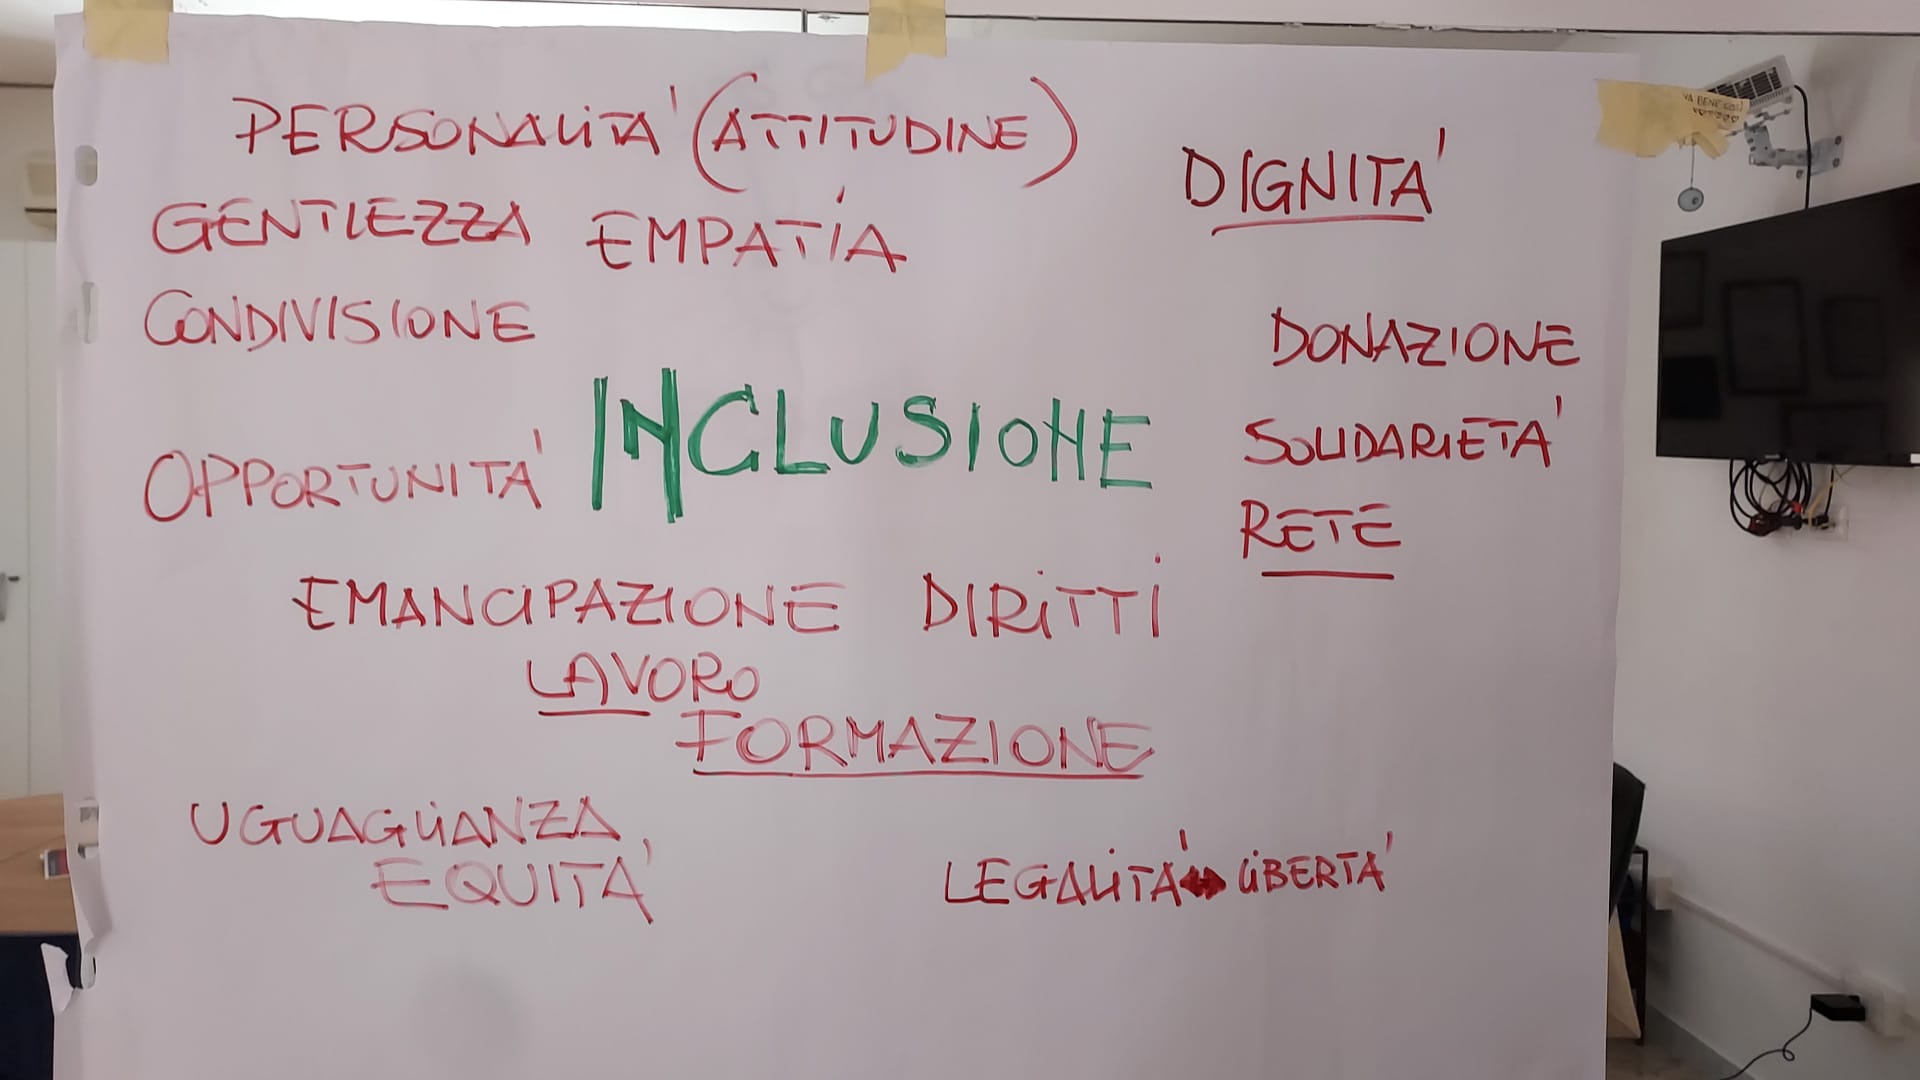 PERSONALITA' (ATTITUDINE)
DIGNITA'
GENTILEZZA EMPATIA
CONDIVISIONE
DONAZIONE
INCLUSIONE
SOLIDARIETA'
OPPORTUNITA'
RETE
EMANCIPAZIONE DIRITTI
LAVORO
FORMAZIONE
UGUAGLIANZA
EQUITA'
LEGALITA' ↔ LIBERTA'
VA BENE COSÌ